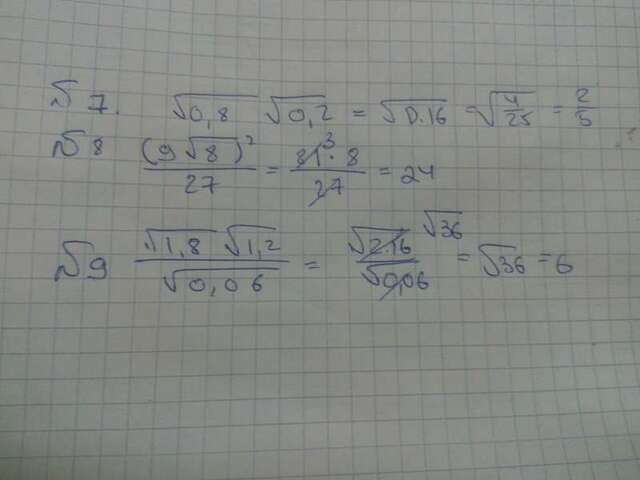 № 7. √0,8 √0,2 = √0.16 = √4/25 = 2/5
№ 8 (9√8)²/27 = 81³·8/27 = 24
№ 9 √1,8 √1,2/√0,06 = √2.16 √36/√0,06 = √36 = 6